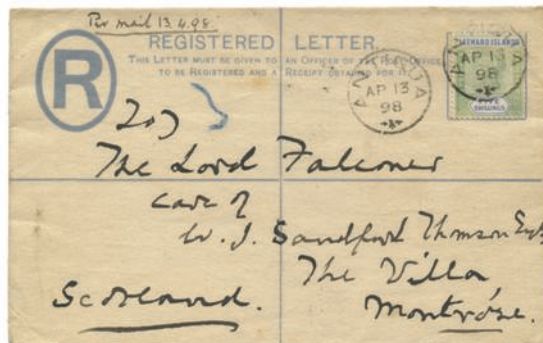 Per mail 13.4.98.
R
REGISTERED LETTER.
THIS LETTER MUST BE GIVEN TO AN OFFICER OF THE POST OFFICE
TO BE REGISTERED AND A RECEIPT OBTAINED FOR IT.
ANTIGUA
AP 13
98
LEEWARD ISLANDS
ANTIGUA
AP 13
98
SHILLINGS
The Lord Falconer
care of
W. J. Sandford Thomson Esq
The Villa,
Scotland.
Montrose.